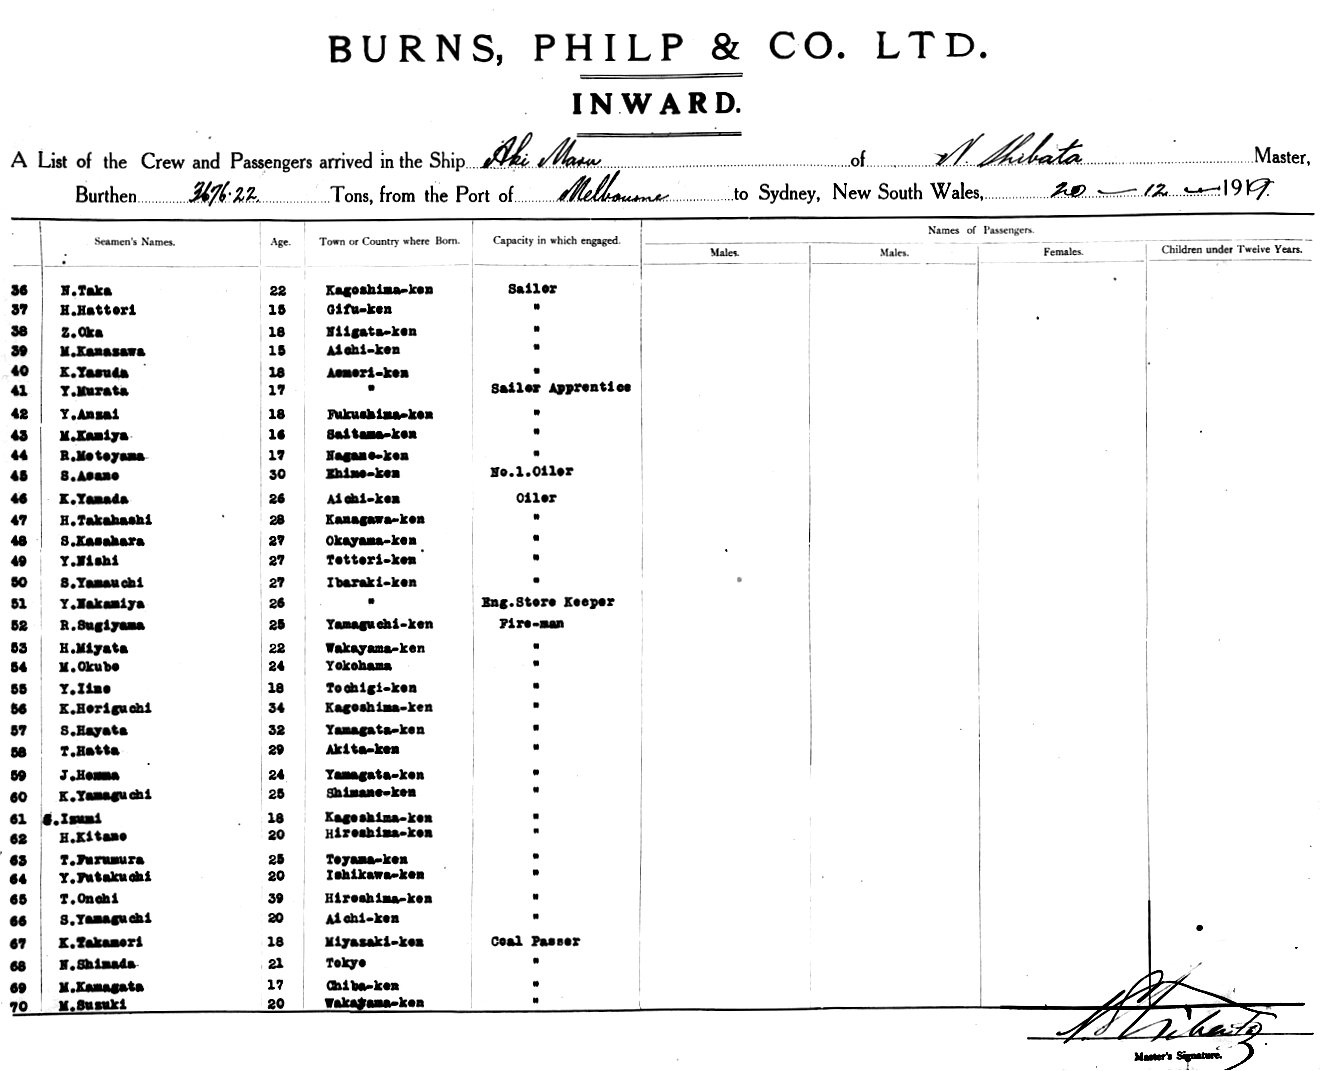 BURNS, PHILP & CO. LTD.
INWARD.
A List of the Crew and Passengers arrived in the Ship Aki Maru of N Shibata Master,
Burthen 3676.22 Tons, from the Port of Melbourne to Sydney, New South Wales, 20 - 12 - 1919.
Seamen's Names. Age. Town or Country where Born. Capacity in which engaged. Names of Passengers.
Males. Males. Females. Children under Twelve Years.
36 N.Taka 22 Kagoshima-ken Sailor
37 H.Hattori 15 Gifu-ken "
38 Z.Oka 18 Niigata-ken "
39 M.Kanasawa 15 Aichi-ken "
40 K.Yasuda 18 Aomori-ken "
41 Y.Murata 17 " Sailor Apprentice
42 Y.Anzai 18 Fukushima-ken "
43 M.Kamiya 16 Saitama-ken "
44 R.Motoyama 17 Nagano-ken "
45 S.Asano 30 Ehime-ken No.1.Oiler
46 K.Yamada 26 Aichi-ken Oiler
47 H.Takahashi 28 Kanagawa-ken "
48 S.Kasahara 27 Okayama-ken "
49 Y.Nishi 27 Tottori-ken "
50 S.Yamauchi 27 Ibaraki-ken "
51 Y.Nakamiya 26 " Eng.Store Keeper
52 R.Sugiyama 25 Yamaguchi-ken Fire-man
53 H.Miyata 22 Wakayama-ken "
54 M.Okubo 24 Yokohama "
55 Y.Iino 18 Tochigi-ken "
56 K.Horiguchi 34 Kagoshima-ken "
57 S.Hayata 32 Yamagata-ken "
58 T.Hatta 29 Akita-ken "
59 J.Homma 24 Yamagata-ken "
60 K.Yamaguchi 25 Shimane-ken "
61 S.Izumi 18 Kagoshima-ken "
62 H.Kitano 20 Hiroshima-ken "
63 T.Furumura 25 Toyama-ken "
64 Y.Futakuchi 20 Ishikawa-ken "
65 T.Onchi 39 Hiroshima-ken "
66 S.Yamaguchi 20 Aichi-ken "
67 K.Takamori 18 Miyasaki-ken Coal Passer
68 N.Shimada 21 Tokyo "
69 M.Kamagata 17 Chiba-ken "
70 M.Suzuki 20 Wakayama-ken "
N Shibata
Master's Signature.